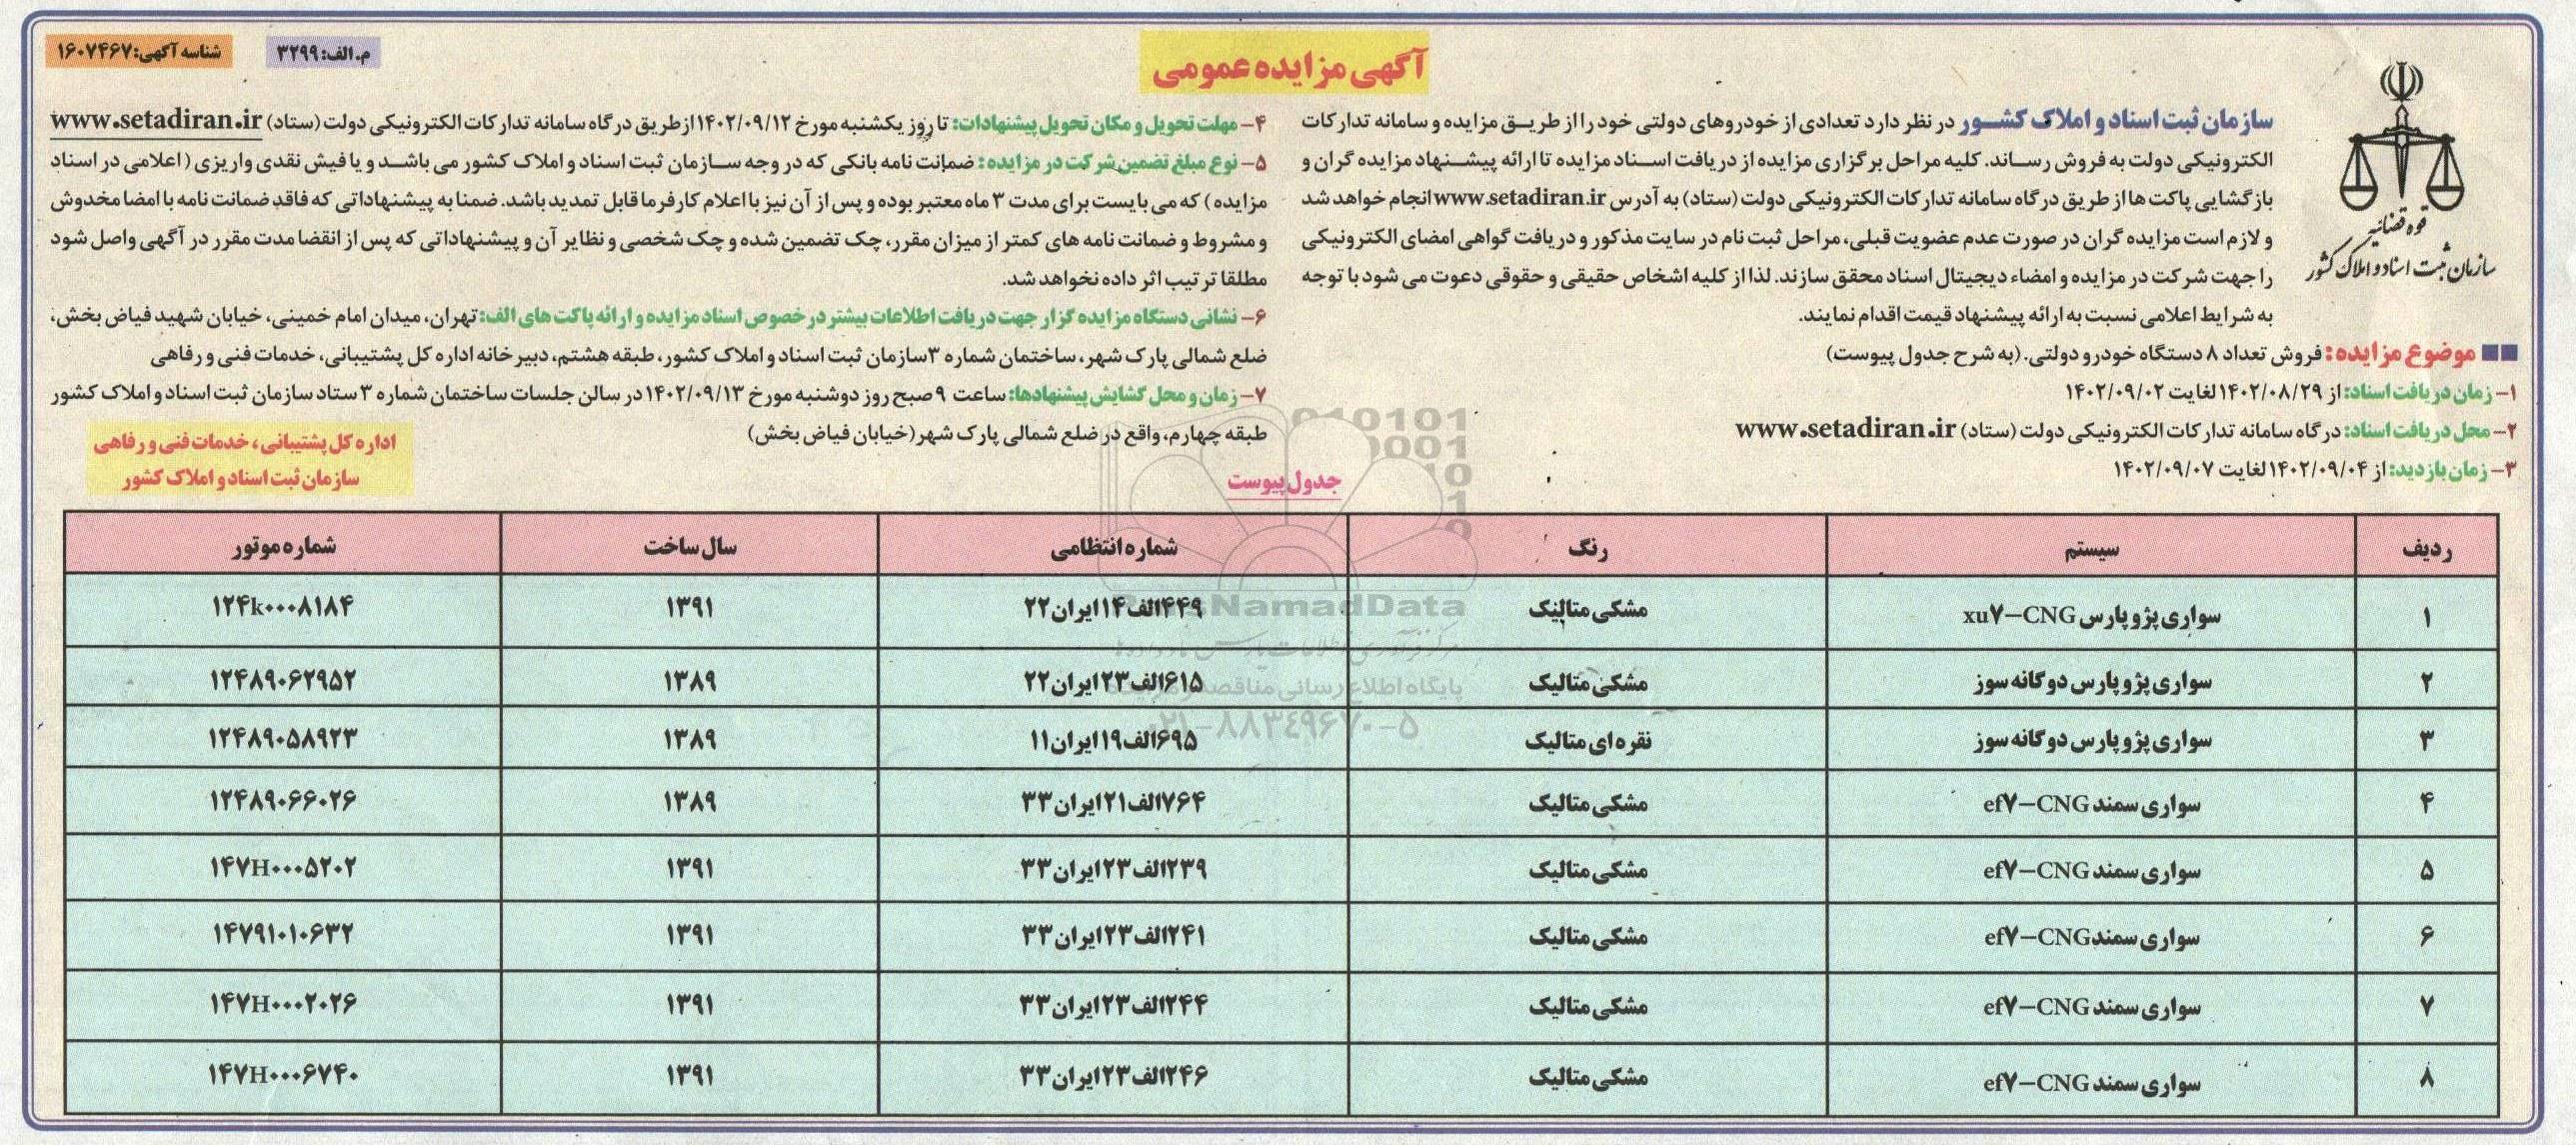 آگهی مزایده عمومی
م.الف: ۳۲۹۹
شناسه آگهی: ۱۶۰۷۴۶۷
قوه قضائیه
سازمان ثبت اسناد و املاک کشور
سازمان ثبت اسناد و املاک کشور در نظر دارد تعدادی از خودروهای دولتی خود را از طریق مزایده و سامانه تدارکات
الکترونیکی دولت به فروش رساند. کلیه مراحل برگزاری مزایده از دریافت اسناد مزایده تا ارائه پیشنهاد مزایده گران و
بازگشایی پاکت ها از طریق درگاه سامانه تدارکات الکترونیکی دولت (ستاد) به آدرس www.setadiran.ir انجام خواهد شد
و لازم است مزایده گران در صورت عدم عضویت قبلی، مراحل ثبت نام در سایت مذکور و دریافت گواهی امضای الکترونیکی
را جهت شرکت در مزایده و امضاء دیجیتال اسناد محقق سازند. لذا از کلیه اشخاص حقیقی و حقوقی دعوت می شود با توجه
به شرایط اعلامی نسبت به ارائه پیشنهاد قیمت اقدام نمایند.
موضوع مزایده: فروش تعداد ۸ دستگاه خودرو دولتی. (به شرح جدول پیوست)
۱- زمان دریافت اسناد: از ۱۴۰۲/۰۸/۲۹ لغایت ۱۴۰۲/۰۹/۰۲
۲- محل دریافت اسناد: درگاه سامانه تدارکات الکترونیکی دولت (ستاد) www.setadiran.ir
۳- زمان بازدید: از ۱۴۰۲/۰۹/۰۴ لغایت ۱۴۰۲/۰۹/۰۷
۴- مهلت تحویل و مکان تحویل پیشنهادات: تا روز یکشنبه مورخ ۱۴۰۲/۰۹/۱۲ از طریق درگاه سامانه تدارکات الکترونیکی دولت (ستاد) www.setadiran.ir
۵- نوع مبلغ تضمین شرکت در مزایده: ضمانت نامه بانکی که در وجه سازمان ثبت اسناد و املاک کشور می باشد و یا فیش نقدی واریزی (اعلامی در اسناد
مزایده) که می بایست برای مدت ۳ ماه معتبر بوده و پس از آن نیز با اعلام کارفرما قابل تمدید باشد. ضمنا به پیشنهاداتی که فاقد ضمانت نامه با امضا مخدوش
و مشروط و ضمانت نامه های کمتر از میزان مقرر، چک تضمین شده و چک شخصی و نظایر آن و پیشنهاداتی که پس از انقضا مدت مقرر در آگهی واصل شود
مطلقا ترتیب اثر داده نخواهد شد.
۶- نشانی دستگاه مزایده گزار جهت دریافت اطلاعات بیشتر در خصوص اسناد مزایده و ارائه پاکت های الف: تهران، میدان امام خمینی، خیابان شهید فیاض بخش،
ضلع شمالی پارک شهر، ساختمان شماره ۳ سازمان ثبت اسناد و املاک کشور، طبقه هشتم، دبیرخانه اداره کل پشتیبانی، خدمات فنی و رفاهی
۷- زمان و محل گشایش پیشنهادها: ساعت ۹ صبح روز دوشنبه مورخ ۱۴۰۲/۰۹/۱۳ در سالن جلسات ساختمان شماره ۳ ستاد سازمان ثبت اسناد و املاک کشور
طبقه چهارم، واقع در ضلع شمالی پارک شهر (خیابان فیاض بخش)
اداره کل پشتیبانی، خدمات فنی و رفاهی
سازمان ثبت اسناد و املاک کشور
جدول پیوست
ردیف سیستم رنگ شماره انتظامی سال ساخت شماره موتور
۱ سواری پژو پارس xu۷-CNG مشکی متالیک ۴۴۹الف۱۴ایران۲۲ ۱۳۹۱ ۱۲۴k۰۰۰۸۱۸۴
۲ سواری پژو پارس دوگانه سوز مشکی متالیک ۶۱۵الف۲۳ایران۲۲ ۱۳۸۹ ۱۲۴۸۹۰۶۲۹۵۲
۳ سواری پژو پارس دوگانه سوز نقره ای متالیک ۶۹۵الف۱۹ایران۱۱ ۱۳۸۹ ۱۲۴۸۹۰۵۸۹۲۳
۴ سواری سمند ef۷-CNG مشکی متالیک ۷۶۴الف۲۱ایران۳۳ ۱۳۸۹ ۱۲۴۸۹۰۶۶۰۲۶
۵ سواری سمند ef۷-CNG مشکی متالیک ۲۳۹الف۲۳ایران۳۳ ۱۳۹۱ ۱۴۷H۰۰۰۵۲۰۲
۶ سواری سمند ef۷-CNG مشکی متالیک ۲۴۱الف۲۳ایران۳۳ ۱۳۹۱ ۱۴۷۹۱۰۱۰۶۳۲
۷ سواری سمند ef۷-CNG مشکی متالیک ۲۴۴الف۲۳ایران۳۳ ۱۳۹۱ ۱۴۷H۰۰۰۲۰۲۶
۸ سواری سمند ef۷-CNG مشکی متالیک ۲۴۶الف۲۳ایران۳۳ ۱۳۹۱ ۱۴۷H۰۰۰۶۷۴۰
NamadData
پایگاه اطلاع رسانی مناقصه
۰۲۱-۸۸۳۴۹۶۷۰-۵